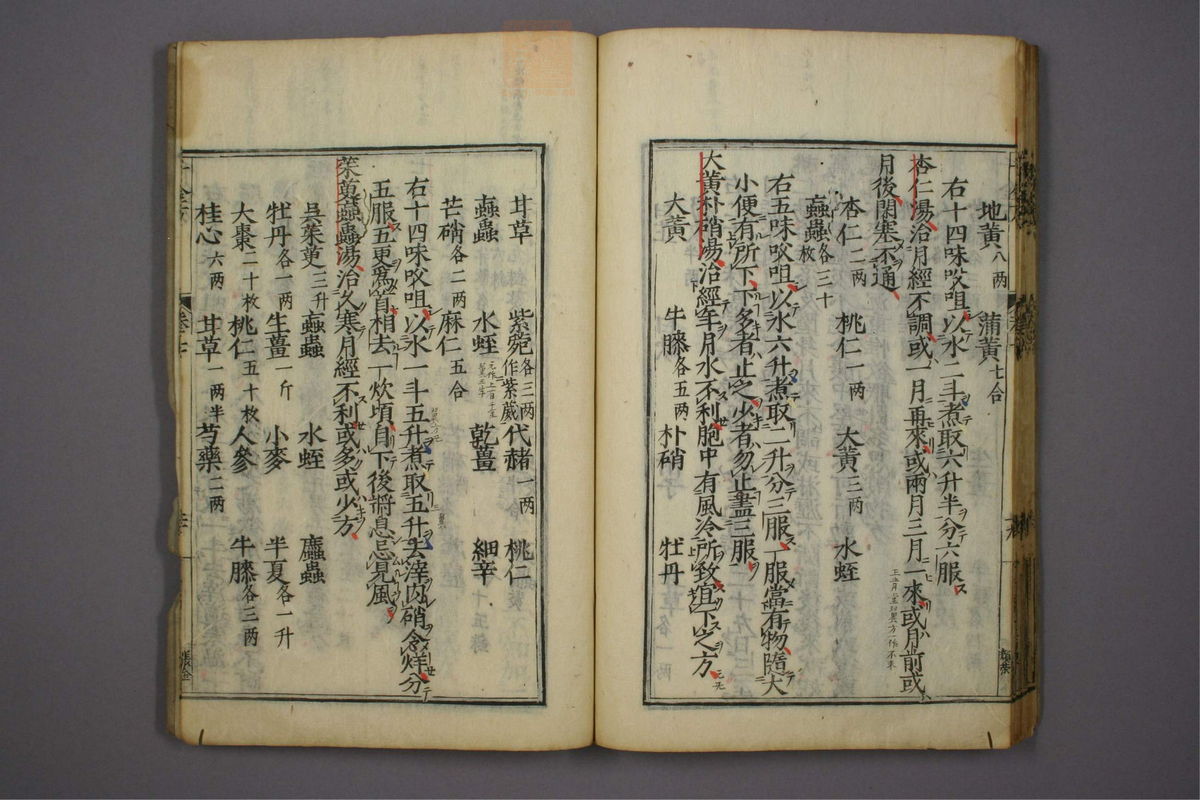 地黄八两 蒲黄七合
右十四味㕮咀以水二斗煮取六升半分六服
杏仁湯治月經不調或一月再來或兩月三月一來或月前或
月後閉塞不通
杏仁二两 桃仁一两 大黄三两 水蛭
蝱蟲各三十枚
右五味㕮咀以水六升煮取二升分三服一服當有物隨大
小便有所下下多者止之少者勿止盡三服
大黄朴硝湯治經年月水不利胞中有風冷所致宜下之方
大黄 牛膝各五两 朴硝 牡丹
甘草 紫菀各三两作紫葳 代赭一两 桃仁
蝱蟲 水蛭 乾薑 細辛
芒硝各二两 麻仁五合
右十四味㕮咀以水一斗五升煮取五升去滓内硝令烊分
五服五更爲首相去一炊頃自下後將息忌見風
茱萸蝱蟲湯治久寒月經不利或多或少方
吳茱萸三升 蝱蟲 水蛭 䗪蟲
牡丹各一两 生薑一斤 小麥 半夏各一升
大棗二十枚 桃仁五十枚 人參 牛膝各三两
桂心六两 甘草一两半 芍藥二两